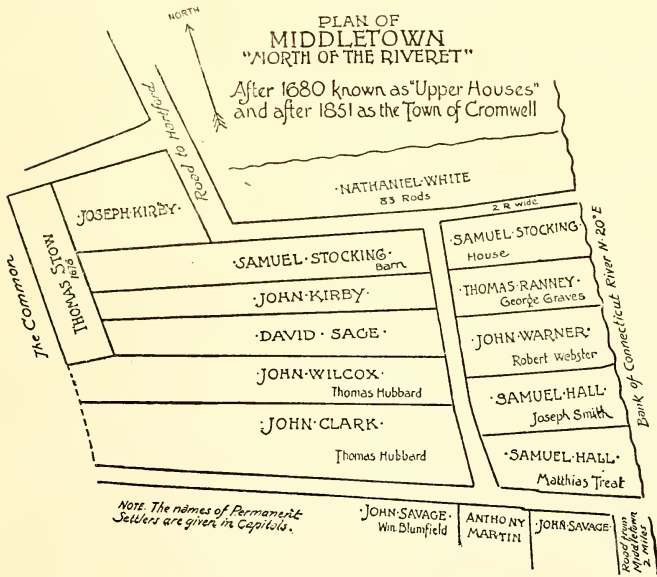 NORTH
PLAN OF
MIDDLETOWN
"NORTH OF THE RIVERET"
After 1680 known as "Upper Houses"
and after 1851 as the Town of Cromwell
Road to Hartford
·NATHANIEL·WHITE
83 Rods
2 R wide
·JOSEPH·KIRBY·
THOMAS STOW
1676
The Common
·SAMUEL·STOCKING·
Barn
·JOHN·KIRBY·
·DAVID·SAGE·
·JOHN·WILCOX·
Thomas Hubbard
·JOHN·CLARK·
Thomas Hubbard
·SAMUEL·STOCKING·
House
·THOMAS·RANNEY·
George Graves
·JOHN·WARNER·
Robert Webster
·SAMUEL·HALL·
Joseph Smith
·SAMUEL·HALL·
Matthias Treat
Bank of Connecticut River N·20°E
NOTE. The names of Permanent
Settlers are given in Capitols.
·JOHN·SAVAGE·
Wm. Blumfield
ANTHONY
MARTIN
·JOHN·SAVAGE·
Road from
Middletown
2 Miles